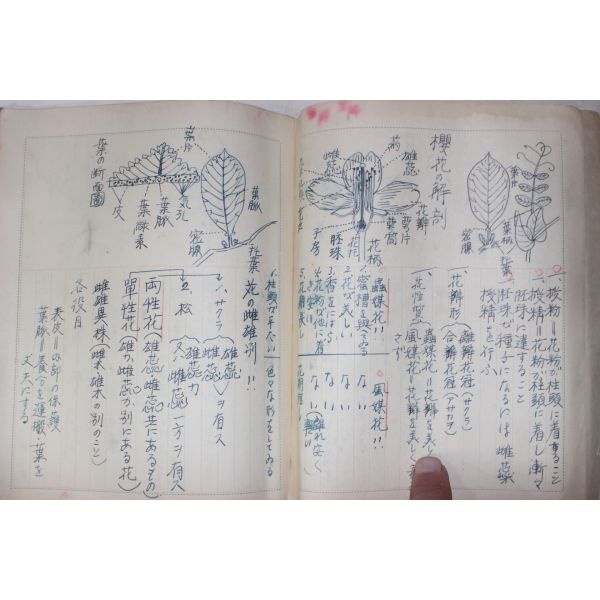 櫻花の解剖
雄蕊
葯
雌蕊
花瓣
萼片
萼筒
花柄
花托
胚珠
子房
葉片
葉柄
葉脈
蜜腺
一、授粉＝花粉が柱頭に着すること
一、授精＝花粉ガ柱頭に着し漸々
胚珠に達すること
胚珠が種子になるには雌蕊
授精を行ふ
花瓣形
離瓣花冠（サクラ）
合瓣花冠（アサガヲ）
蟲媒花＝花瓣を美しく
風媒花＝花瓣を美しく
さず
蟲媒花!!
風媒花!!
2.花が美しい
ない
ない
ない
葉片
葉脈
蜜腺
托葉
葉の断面圖
気孔
葉脈
葉緑素
皮
花の雌雄別!!
1、サクラ
雄蕊
雌蕊
ヲ有ス
2、松
雄蕊カ
又ハ雌蕊
一方ヲ有ス
両性花（雄蕊雌蕊共にあるもの）
單性花（雄か雌蕊が別にある花）
雌雄異株（雌木雄木の別のこと）
各役目
表皮＝内部の保護
葉脈＝養分を運搬・葉を
丈夫にする